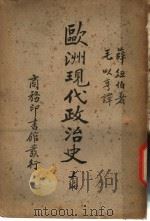 薛紐伯著
毛以亨譯
歐洲現代政治史
上册
商務印書館發行